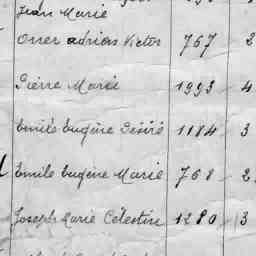 Jean Marie
Omer adrien Victor 767 2
Pierre Marie 1993 4
Emile Eugène Désiré 1184 3
Emile Eugène Marie 768 2
Joseph Marie Célestin 1280 3